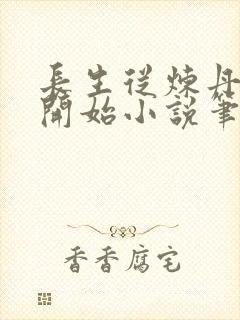 長生從煉丹
開始小說筆
香香腐宅